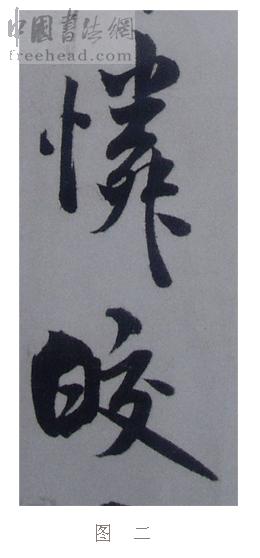 中國書法網
freehead.com
憐
皎
图 二